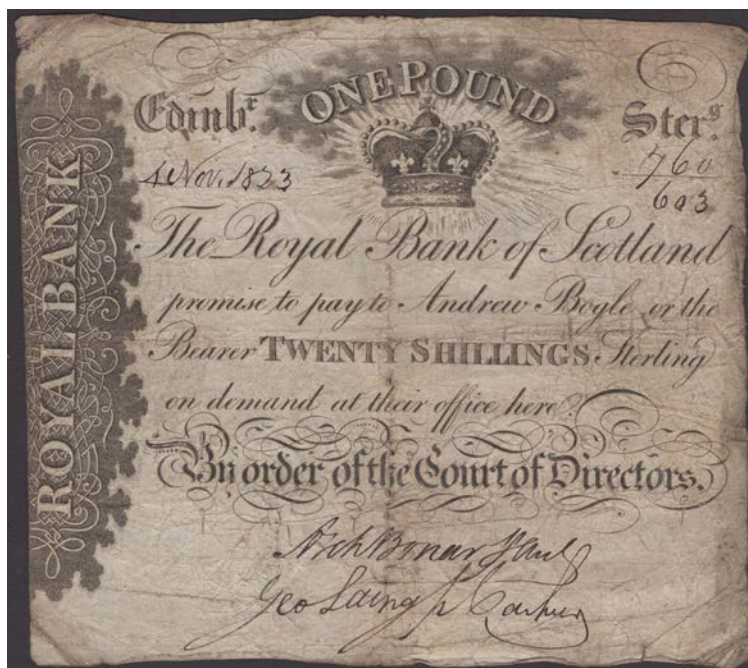 ROYAL BANK
ONE POUND
Edinbr. Sterg.
4 Nov. 1823 760
603
The Royal Bank of Scotland
promise to pay to Andrew Bogle or the
Bearer TWENTY SHILLINGS Sterling
on demand at their office here.
By order of the Court of Directors.
Arch Bonar
Geo Laing p Cashier